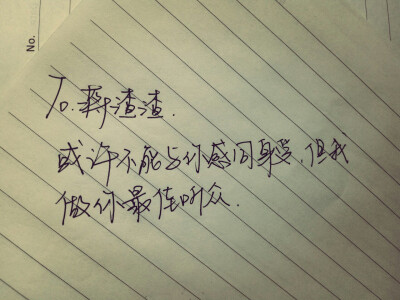 No.
To.蒋渣渣.
或许不能与你感同身受,但我
做你最佳听众.